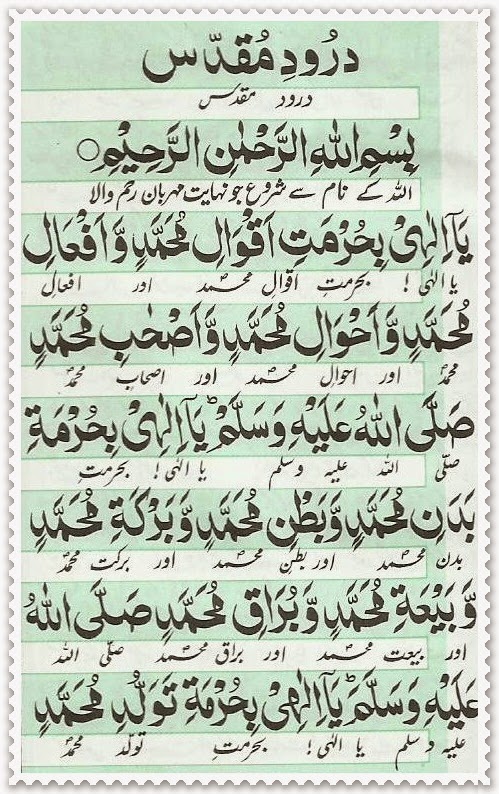 دُرُودِ مُقَدَّس
درود مقدس
بِسْمِ اللهِ الرَّحْمٰنِ الرَّحِيْمِ○
اللہ کے نام سے شروع جو نہایت مہربان رحم والا
يَآ اِلٰهِىْ بِحُرْمَتِ اَقْوَالِ مُحَمَّدٍ وَّاَفْعَالِ
یا الٰہی! بحرمتِ اقوالِ محمدؐ اور افعالِ
مُحَمَّدٍ وَّاَحْوَالِ مُحَمَّدٍ وَّاَصْحٰبِ مُحَمَّدٍ
محمدؐ اور احوالِ محمدؐ اور اصحابِ محمدؐ
صَلَّى اللهُ عَلَيْهِ وَسَلَّمَؕ يَآ اِلٰهِىْ بِحُرْمَةِ
صلّی اللہ علیہ وسلم یا الٰہی! بحرمتِ
بَدَنِ مُحَمَّدٍ وَّبَطْنِ مُحَمَّدٍ وَّبَرْكَةِ مُحَمَّدٍ
بدن محمدؐ اور بطنِ محمدؐ اور برکت محمدؐ
وَّبَيْعَةِ مُحَمَّدٍ وَّبُرَاقِ مُحَمَّدٍ صَلَّى اللهُ
اور بیعت محمدؐ اور براق محمدؐ صلّی اللہ
عَلَيْهِ وَسَلَّمَؕ يَآ اِلٰهِىْ بِحُرْمَةِ تَوَلُّدِ مُحَمَّدٍ
علیہ وسلم یا الٰہی! بحرمتِ تولّد محمدؐ